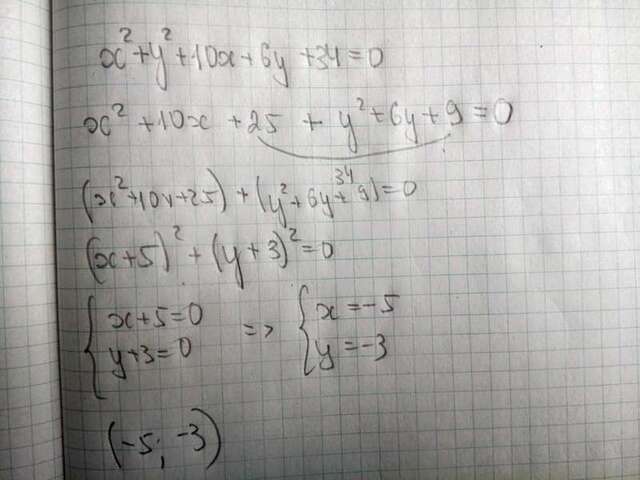 x² + y² + 10x + 6y + 34 = 0
x² + 10x + 25 + y² + 6y + 9 = 0
34
(x² + 10x + 25) + (y² + 6y + 9) = 0
(x + 5)² + (y + 3)² = 0
{ x + 5 = 0 => { x = -5
{ y + 3 = 0 { y = -3
(-5; -3)